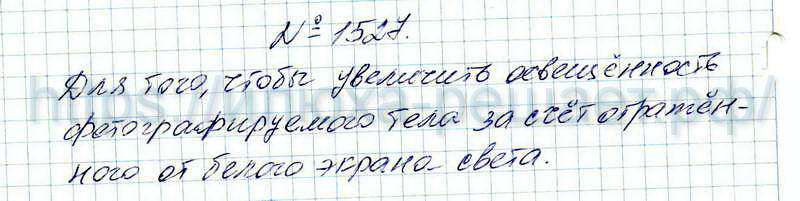 № 1527.
Для того, чтобы увеличить освещённость
фотографируемого тела за счёт отражён-
ного от белого экрана света.